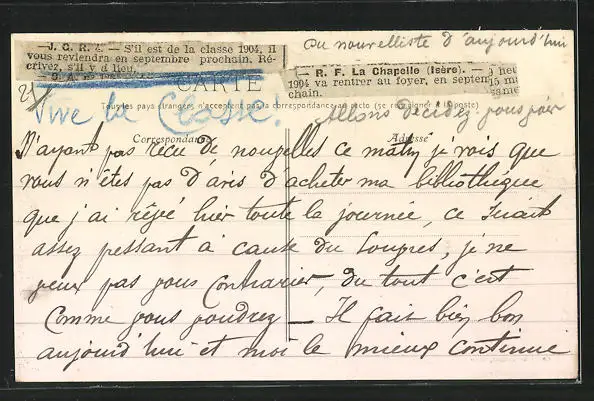 — J. C. R. 4. — S'il est de la classe 1904, il
vous reviendra en septembre prochain. Ré-
crivez, s'il y a lieu.
au nouvelliste d'aujourd'hui
— R. F. La Chapelle (Isère). —
1904 va rentrer au foyer, en septem
chain.
CARTE
Tous les pays étrangers n'acceptent pas la correspondance au recto (se renseigner à la poste)
Vive la Classe!
Allons décidez-vous
Correspondance
Adresse
N'ayant pas reçu de nouvelles ce matin je vois que
vous n'êtes pas d'avis d'acheter ma bibliothèque
que j'ai rêvé hier toute la journée, ce serait
assez pressant à cause du Congrès, je ne
veux pas vous contrarier, du tout c'est
comme vous voudrez — Il fait bien bon
aujourd'hui et moi le mieux continue